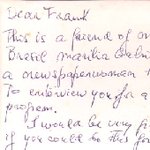 Dear Frank
This is a friend of m
Brasil Marilia
a newspaperwoman
To enterview you for a
program.
I would be very
if you could do this for